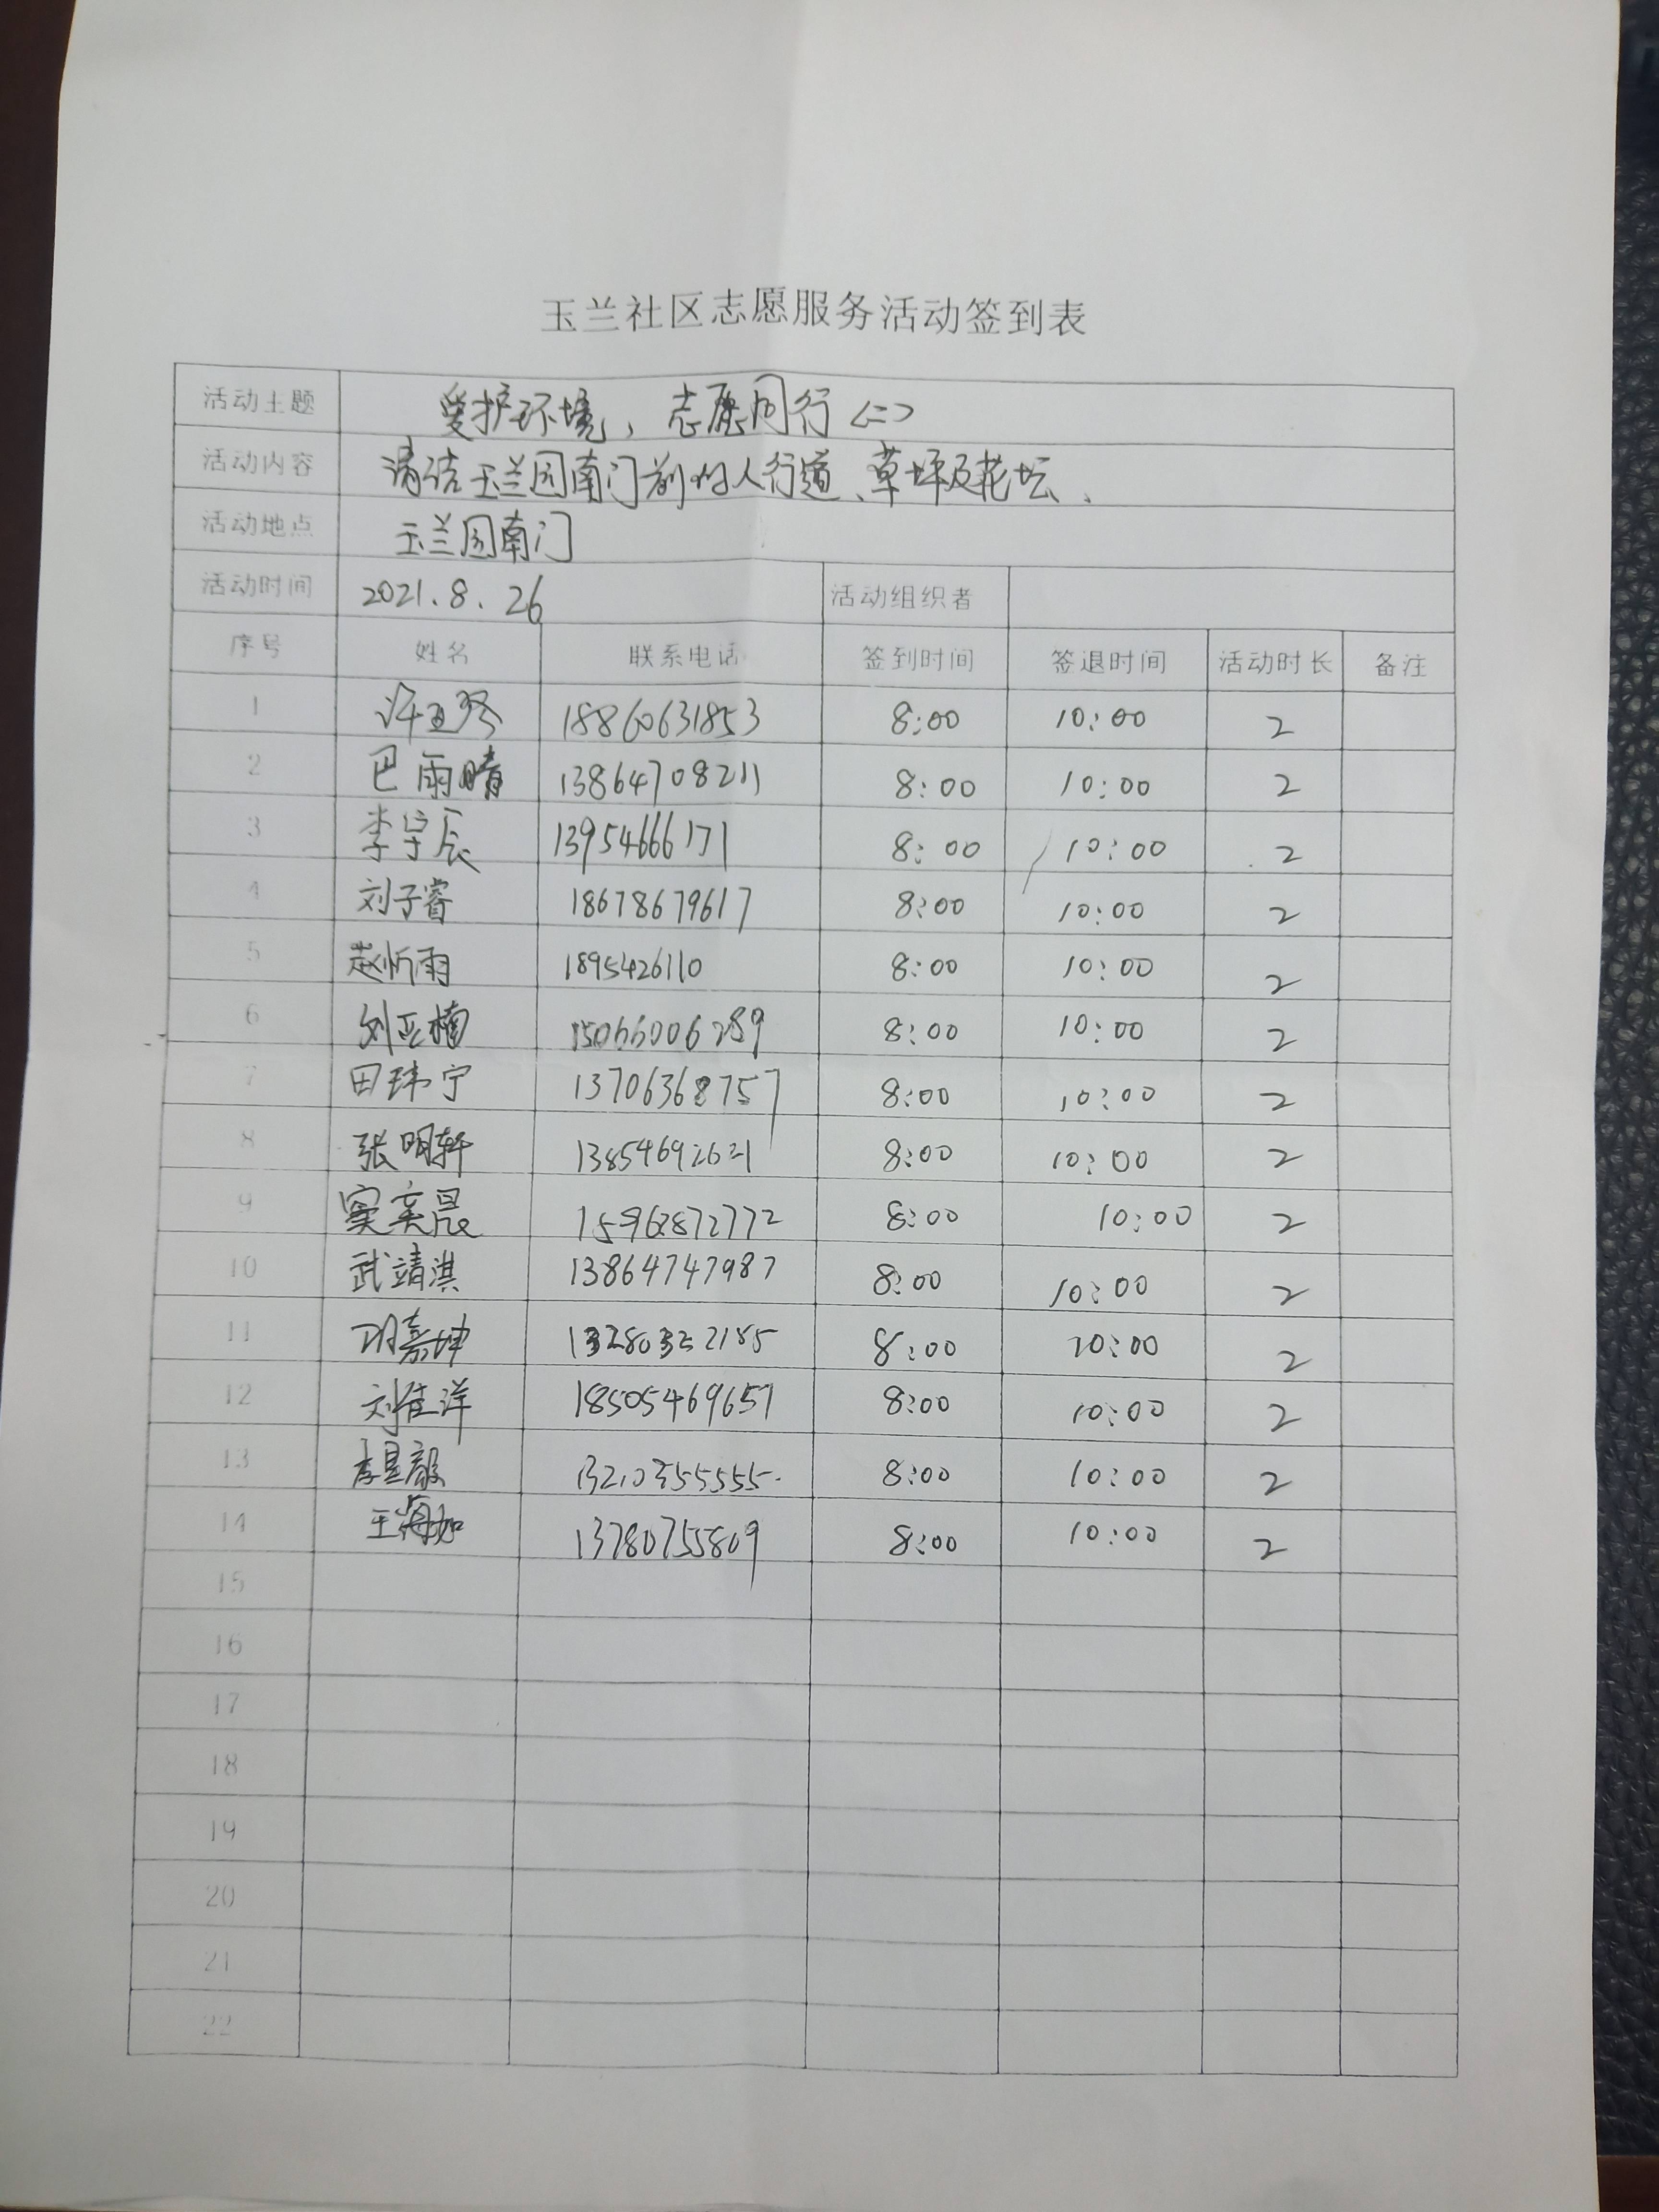 玉兰社区志愿服务活动签到表
活动主题 爱护环境，志愿同行<二>
活动内容 清洁玉兰园南门前的人行道、草坪及花坛、
活动地点 玉兰园南门
活动时间 2021.8.26 活动组织者
序号 姓名 联系电话 签到时间 签退时间 活动时长 备注
1 许 18860631853 8:00 10:00 2
2 巴雨晴 13864708211 8:00 10:00 2
3 李宇辰 13954666171 8:00 10:00 2
4 刘子睿 18678679617 8:00 10:00 2
5 赵忻雨 1895426110 8:00 10:00 2
6 刘正楠 15066006289 8:00 10:00 2
7 田玮宁 13706368757 8:00 10:00 2
8 张明轩 13854692621 8:00 10:00 2
9 窦奕晨 15962872772 8:00 10:00 2
10 武靖淇 13864747987 8:00 10:00 2
11 嘉坤 13280322185 8:00 10:00 2
12 刘佳洋 18505469657 8:00 10:00 2
13 李昱毅 13210355555. 8:00 10:00 2
14 王海如 13780755809 8:00 10:00 2
15
16
17
18
19
20
21
22